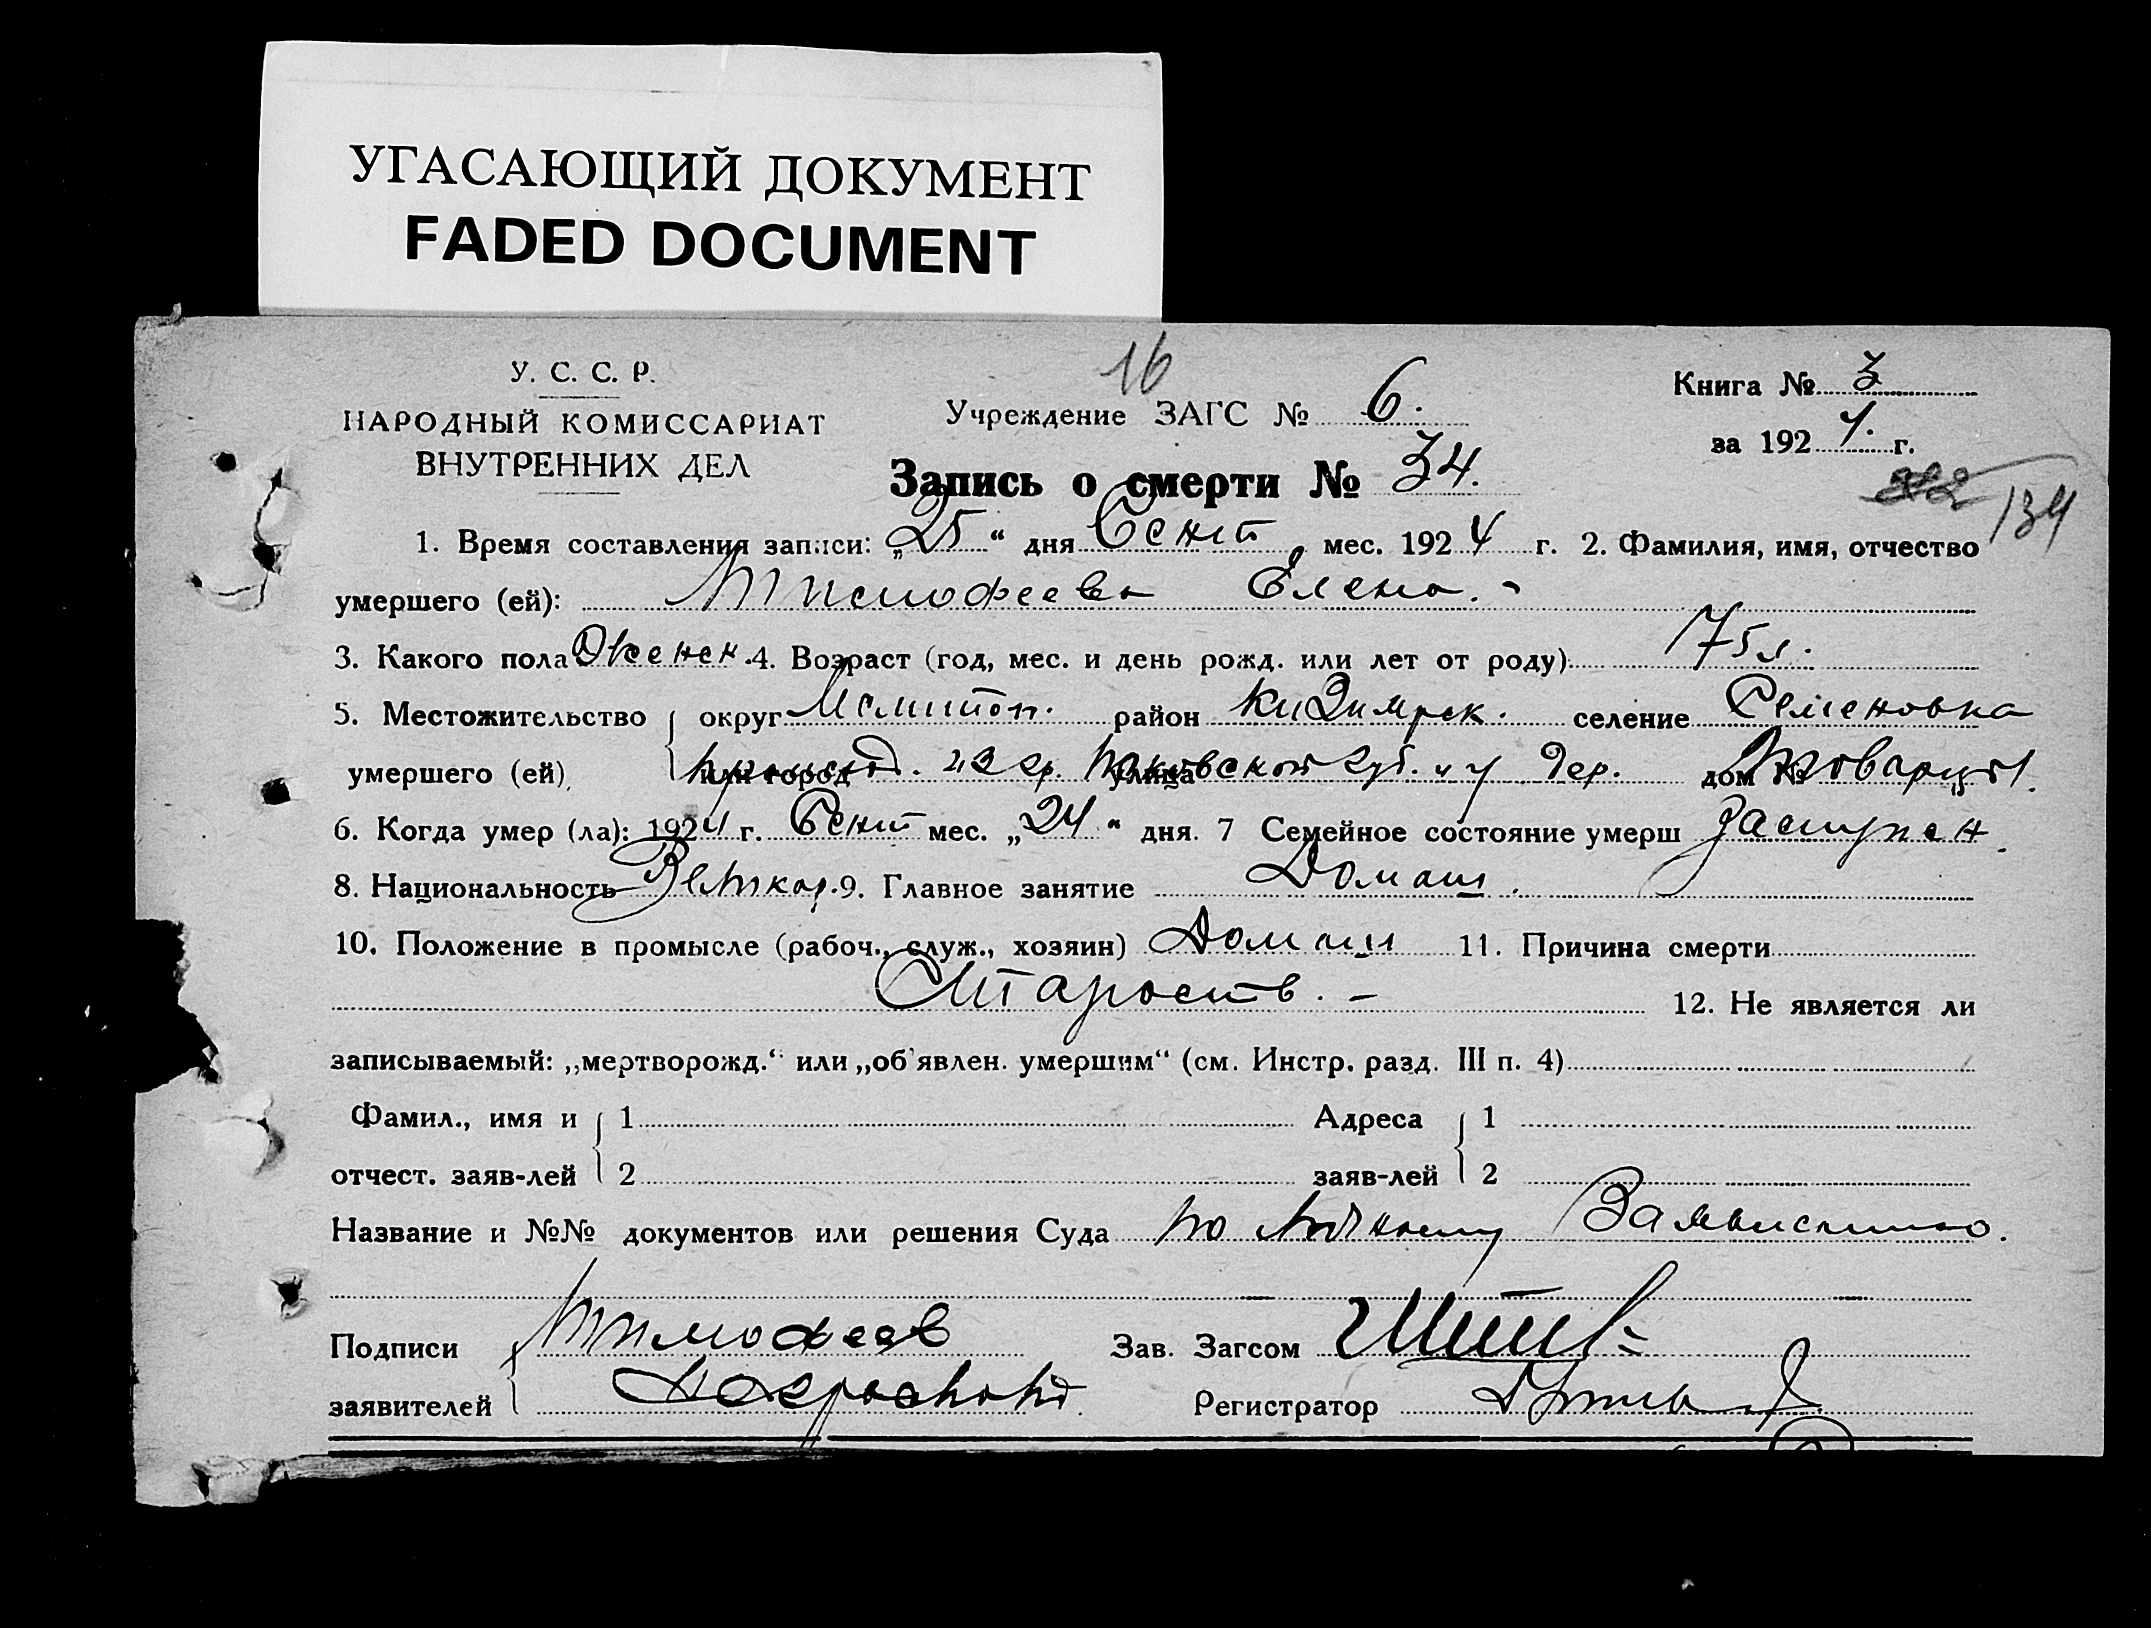 УГАСАЮЩИЙ ДОКУМЕНТ
FADED DOCUMENT
У. С. С. Р.
НАРОДНЫЙ КОМИССАРИАТ
ВНУТРЕННИХ ДЕЛ
16
Учреждение ЗАГС № 6.
Книга № 3
за 192 4. г.
Запись о смерти № 34.
134
1. Время составления записи: „25“ дня Сент мес. 192 4 г. 2. Фамилия, имя, отчество
умершего (ей): Тимофеева Елена. -
3. Какого пола Женск. 4. Возраст (год, мес. и день рожд. или лет от роду) 75 л.
5. Местожительство округ Мелитоп. район Кизимрек. селение Семеновка
умершего (ей) или город улица губ. и у дер. дом №
6. Когда умер (ла): 1924 г. Сент мес. „24“ дня. 7 Семейное состояние умерш
8. Национальность Великор. 9. Главное занятие Домаш.
10. Положение в промысле (рабоч., служ., хозяин) Домаш 11. Причина смерти
Старость. - 12. Не является ли
записываемый: „мертворожд.“ или „об'явлен. умершим“ (см. Инстр. разд. III п. 4)
Фамил., имя и 1 Адреса 1
отчест. заяв-лей 2 заяв-лей 2
Название и №№ документов или решения Суда по личному
Подписи Тимофеев Зав. Загсом
заявителей Регистратор